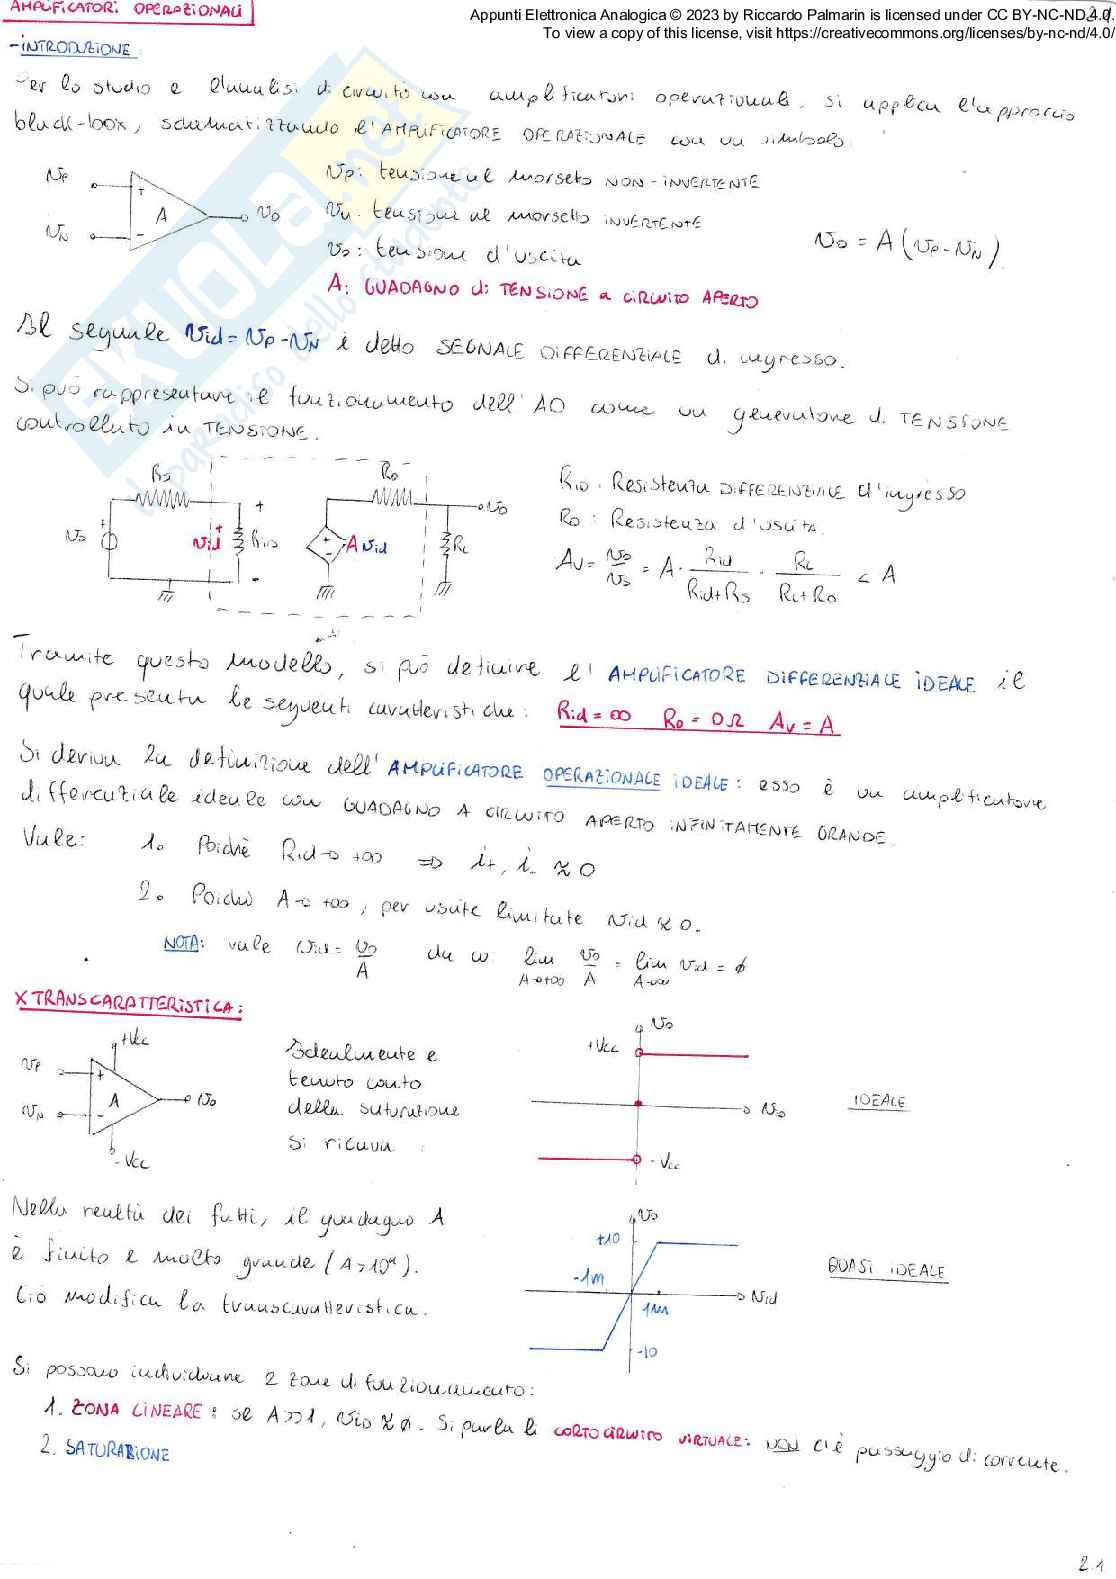 AMPLIFICATORI OPERAZIONALI
Appunti Elettronica Analogica © 2023 by Riccardo Palmarin is licensed under CC BY-NC-ND 4.0.
To view a copy of this license, visit https://creativecommons.org/licenses/by-nc-nd/4.0/
-INTRODUZIONE:
Per lo studio e l'analisi di circuiti con amplificatori operazionali, si applica l'approccio
black-box, schematizzando l'AMPLIFICATORE OPERAZIONALE con un simbolo:
SKUOLA.net
il paradiso dello studente
vP
+
A
vN
-
vo
vP: tensione al morsetto NON-INVERTENTE
vN: tensione al morsetto INVERTENTE
vo: tensione d'uscita
A: GUADAGNO di TENSIONE a CIRCUITO APERTO
vo = A (vP - vN).
Il segnale vid = vP - vN è detto SEGNALE DIFFERENZIALE di ingresso.
Si può rappresentare il funzionamento dell'AO come un generatore di TENSIONE
controllato in TENSIONE.
Rs
Ro
vo
+
vid
Rid
A vid
RL
Rid: Resistenza DIFFERENZIALE d'ingresso
Ro: Resistenza d'uscita
Av = vo/vs = A · Rid/(Rid+Rs) · RL/(RL+Ro) < A
Tramite questo modello, si può definire l'AMPLIFICATORE DIFFERENZIALE IDEALE il
quale presenta le seguenti caratteristiche: Rid = ∞ Ro = 0Ω Av = A
Si deriva la definizione dell'AMPLIFICATORE OPERAZIONALE IDEALE: esso è un amplificatore
differenziale ideale con GUADAGNO A CIRCUITO APERTO INFINITAMENTE GRANDE.
Vale: 1. Poichè Rid→+∞ ⇒ i+, i- ≈ 0
2. Poichè A→+∞, per uscite limitate vid ≈ 0.
NOTA: vale vid = vo/A da cui lim A→+∞ vo/A = lim A→+∞ vid = ϕ
X TRANSCARATTERISTICA:
+Vcc
vP
+
A
vN
-
vo
-Vcc
Idealmente e
tenuto conto
della saturazione
si ricava:
vo
+Vcc
vid
-Vcc
IDEALE
Nella realtà dei fatti, il guadagno A
è finito e molto grande (A>10⁴).
Ciò modifica la transcaratteristica.
vo
+10
-1m
1m
vid
-10
QUASI IDEALE
Si possono individuare 2 zone di funzionamento:
1. ZONA LINEARE: se A>>1, vid ≈ ϕ. Si parla di CORTOCIRCUITO VIRTUALE: NON c'è passaggio di corrente.
2. SATURAZIONE
2.1